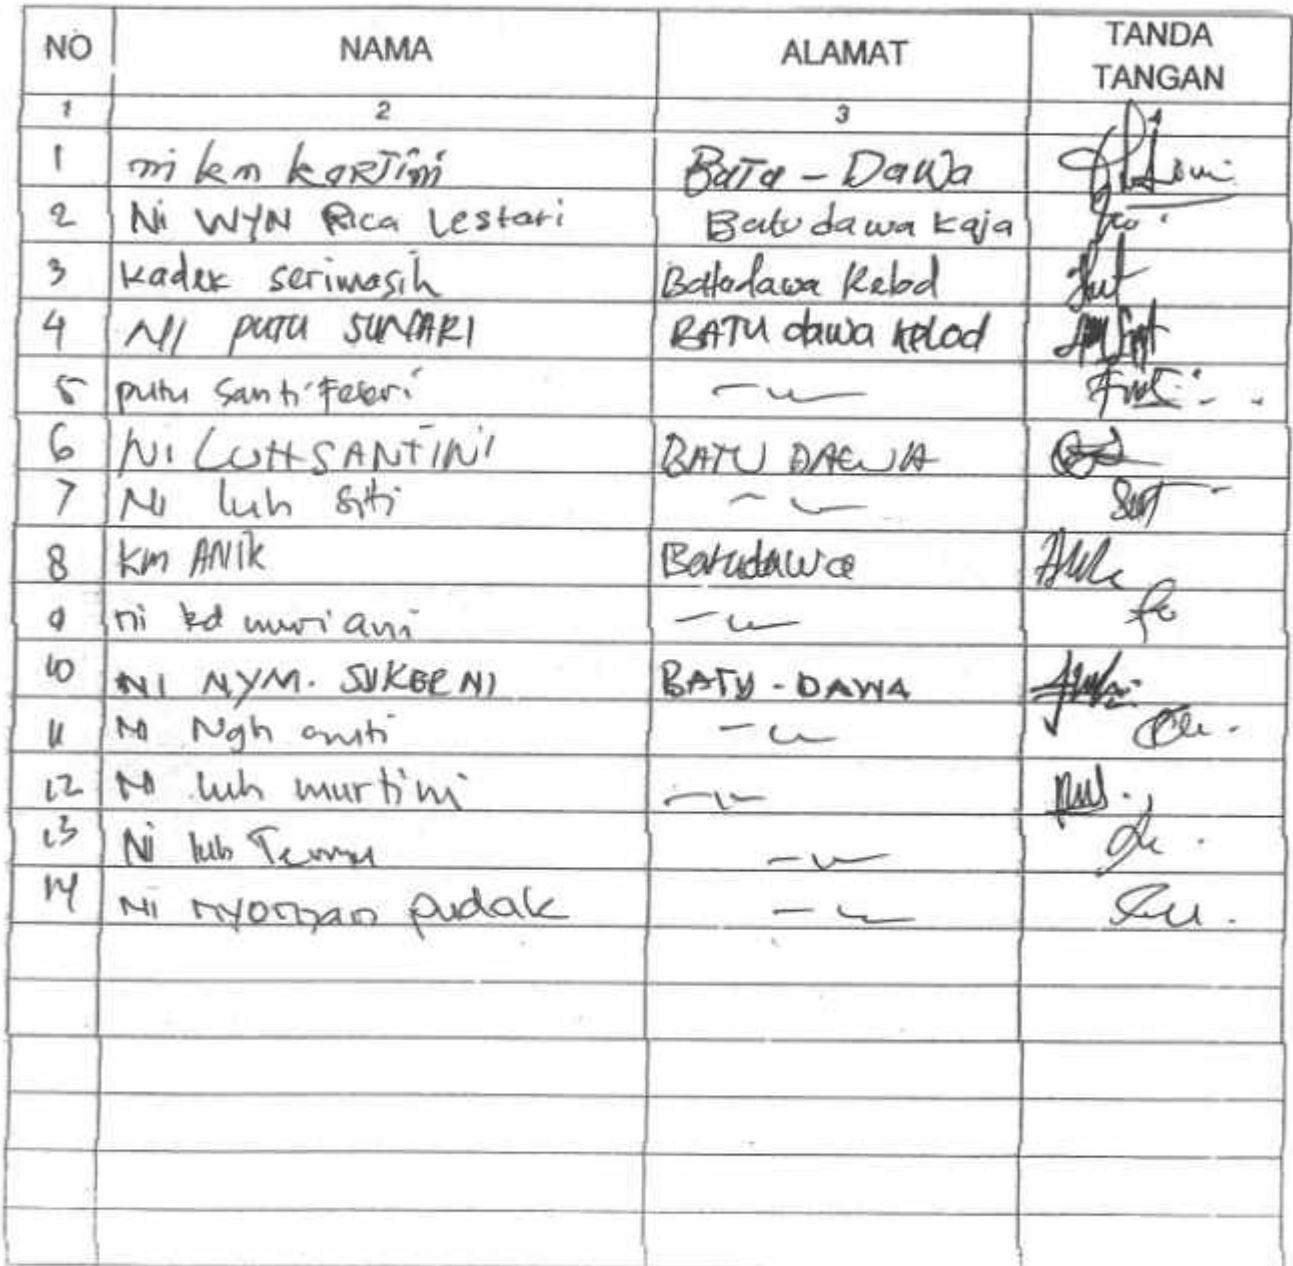 NO NAMA ALAMAT TANDA TANGAN
1 2 3 4
1 ni km kARTini BaTa - Dawa
2 Ni WYN Rica Lestari Batu dawa Kaja
3 kadek serimasih Batudawa Kelod
4 NI PUTU SUNDARI BATU dawa kelod
5 putu Santi
6 NI LUH SANTINI BATU DAWA
7 Ni luh Siti
8 km ANIK Batudawa
9 ni kd muriani
10 NI NYM. SUKERNI BATU - DAWA
11 Ni Ngh
12 Ni luh murtini
13 Ni luh
14 Ni nyoman pudak